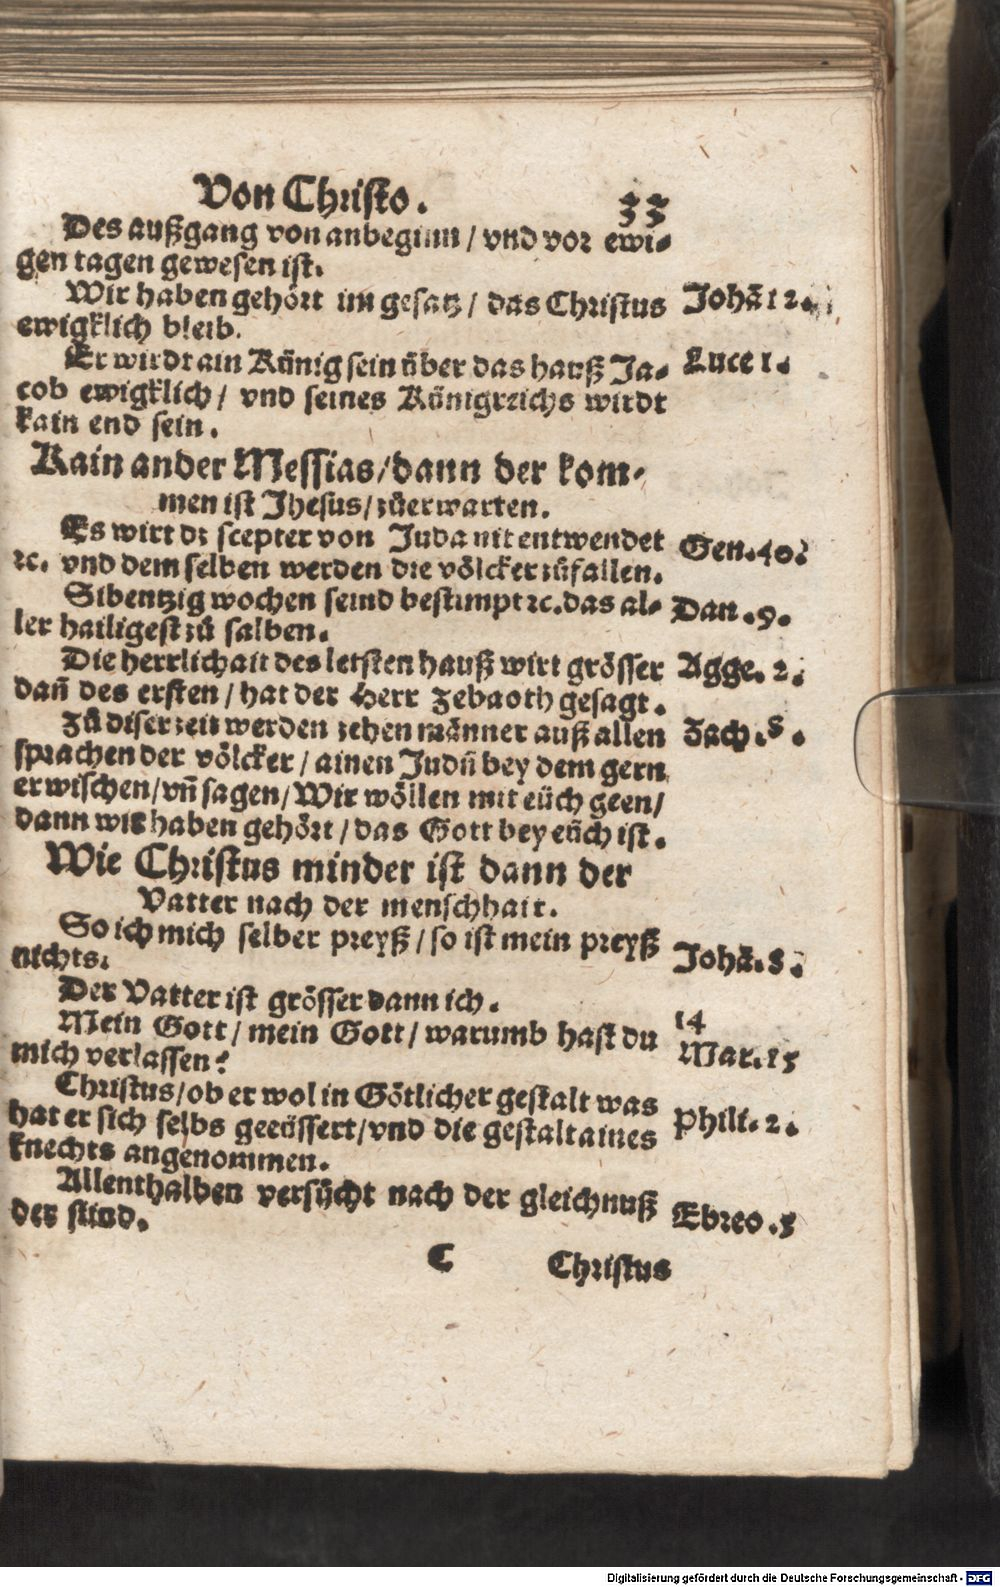 Von Christo. 33
Des außgang von anbeginn / vnd vor ewi-
gen tagen gewesen ist.
Wir haben gehört im gesatz / das Christus Johā 12.
ewigklich bleib.
Er wirdt ain Künig sein über das hauß Ja- Luce 1.
cob ewigklich / vnd seines Künigreichs wirdt
kain end sein.
Kain ander Messias / dann der kom-
men ist Jhesus / zůerwarten.
Es wirt dz scepter von Juda nit entwendet Gen. 49.
ꝛc. vnd dem selben werden die völcker zůfallen.
Sibentzig wochen seind bestimpt ꝛc. das al- Dan. 9.
ler hailigest zů salben.
Die herrlichait des letsten hauß wirt grösser Agge. 2.
dañ des ersten / hat der Herr Zebaoth gesagt.
Zů diser zeit werden zehen männer auß allen Zach. 8.
sprachen der völcker / ainen Judñ bey dem gern
erwischen / vñ sagen / Wir wöllen mit eüch geen /
dann wir haben gehört / das Gott bey eüch ist.
Wie Christus minder ist dann der
Vatter nach der menschhait.
So ich mich selber preyß / so ist mein preyß Johā. 8.
nichts.
Der Vatter ist grösser dann ich. 14
Mein Gott / mein Gott / warumb hast du Mar. 15
mich verlassen?
Christus / ob er wol in Götlicher gestalt was
hat er sich selbs geeüssert / vnd die gestalt aines Phili. 2.
knechts angenommen.
Allenthalben versůcht nach der gleichnuß Ebreo. 5
der sünd.
C Christus
Digitalisierung gefördert durch die Deutsche Forschungsgemeinschaft - DFG